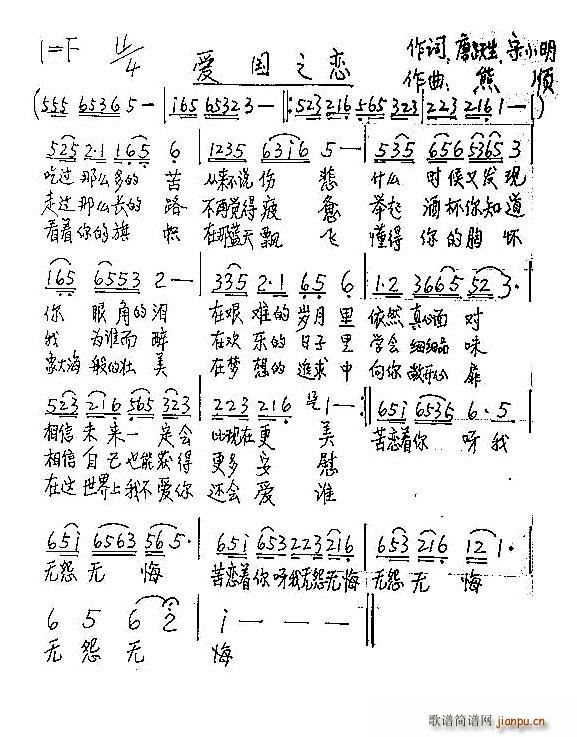 1=F 4/4 爱国之恋 作词 唐跃生 宋小明
作曲: 熊 顺
(555 6536 5— | i65 65323— |: 5232216 565323 | 2232161—|)
525 2·1 165 6 | 1235 63i6 5— | 535 656 5365 3
吃过那么多的苦 从来不说伤悲 什么时候又发现
走过那么长的路 不再觉得疲惫 举起酒杯你知道
看着你的旗帜 在那蓝天飘飞 懂得你的胸怀
165 6553 2— | 335 2·1 65 6 | 1·2 3665 52 3·
你眼角的泪 在艰难的岁月里 依然真心面对
我为谁而醉 在欢乐的日子里 学会细细品味
象大海般的壮美 在梦想的追求中 向你敞开心扉
523 216 565 323 | 223 216 1— :| 65i 6535 6·5·
相信未来一定会 比现在更美 苦恋着你呀我
相信自己也能获得 更多安慰
在这世界上我不爱你 还会爱谁
65i 6563 56 5· | 65i 653 223 216 | 653 216 12 1·
无怨无悔 苦恋着你呀我无怨无悔 无怨无悔
6 5 6 2 | i — — — ‖
无怨无 悔
歌谱简谱网
jianpu.cn